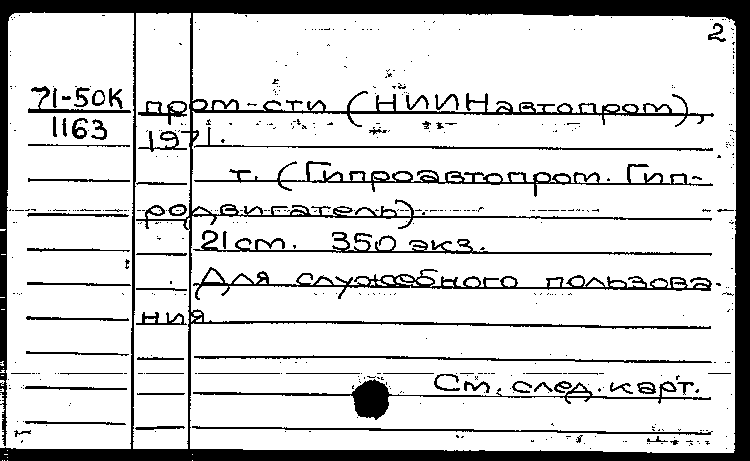 2
71-50К пром-сти (НИИНавтопром),
1163 1971.
т. (Гипроавтопром. Гип-
родвигатель).
21 cm. 350 экз.
Для служебного пользова-
ния.
См. след. карт.